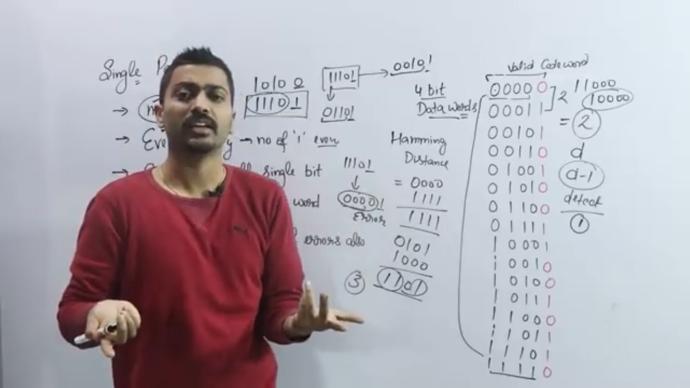 Single P
→ m
→ Eve y → no of '1' even
ll single bit
word
errors also
10100
11101
11101 → 00101
↓
01101
11101
↓
00001
Error
③
4 bit
Data words
Hamming
Distance
= 0000
1111
1111
0101
1000
1101
Valid Codeword
00000
00011
00101
00110
01001
01010
01100
01111
10001
10010
10100
10111
11000
11011
11101
11110
2
11000
10000
= ②
d
d-1
detect
①